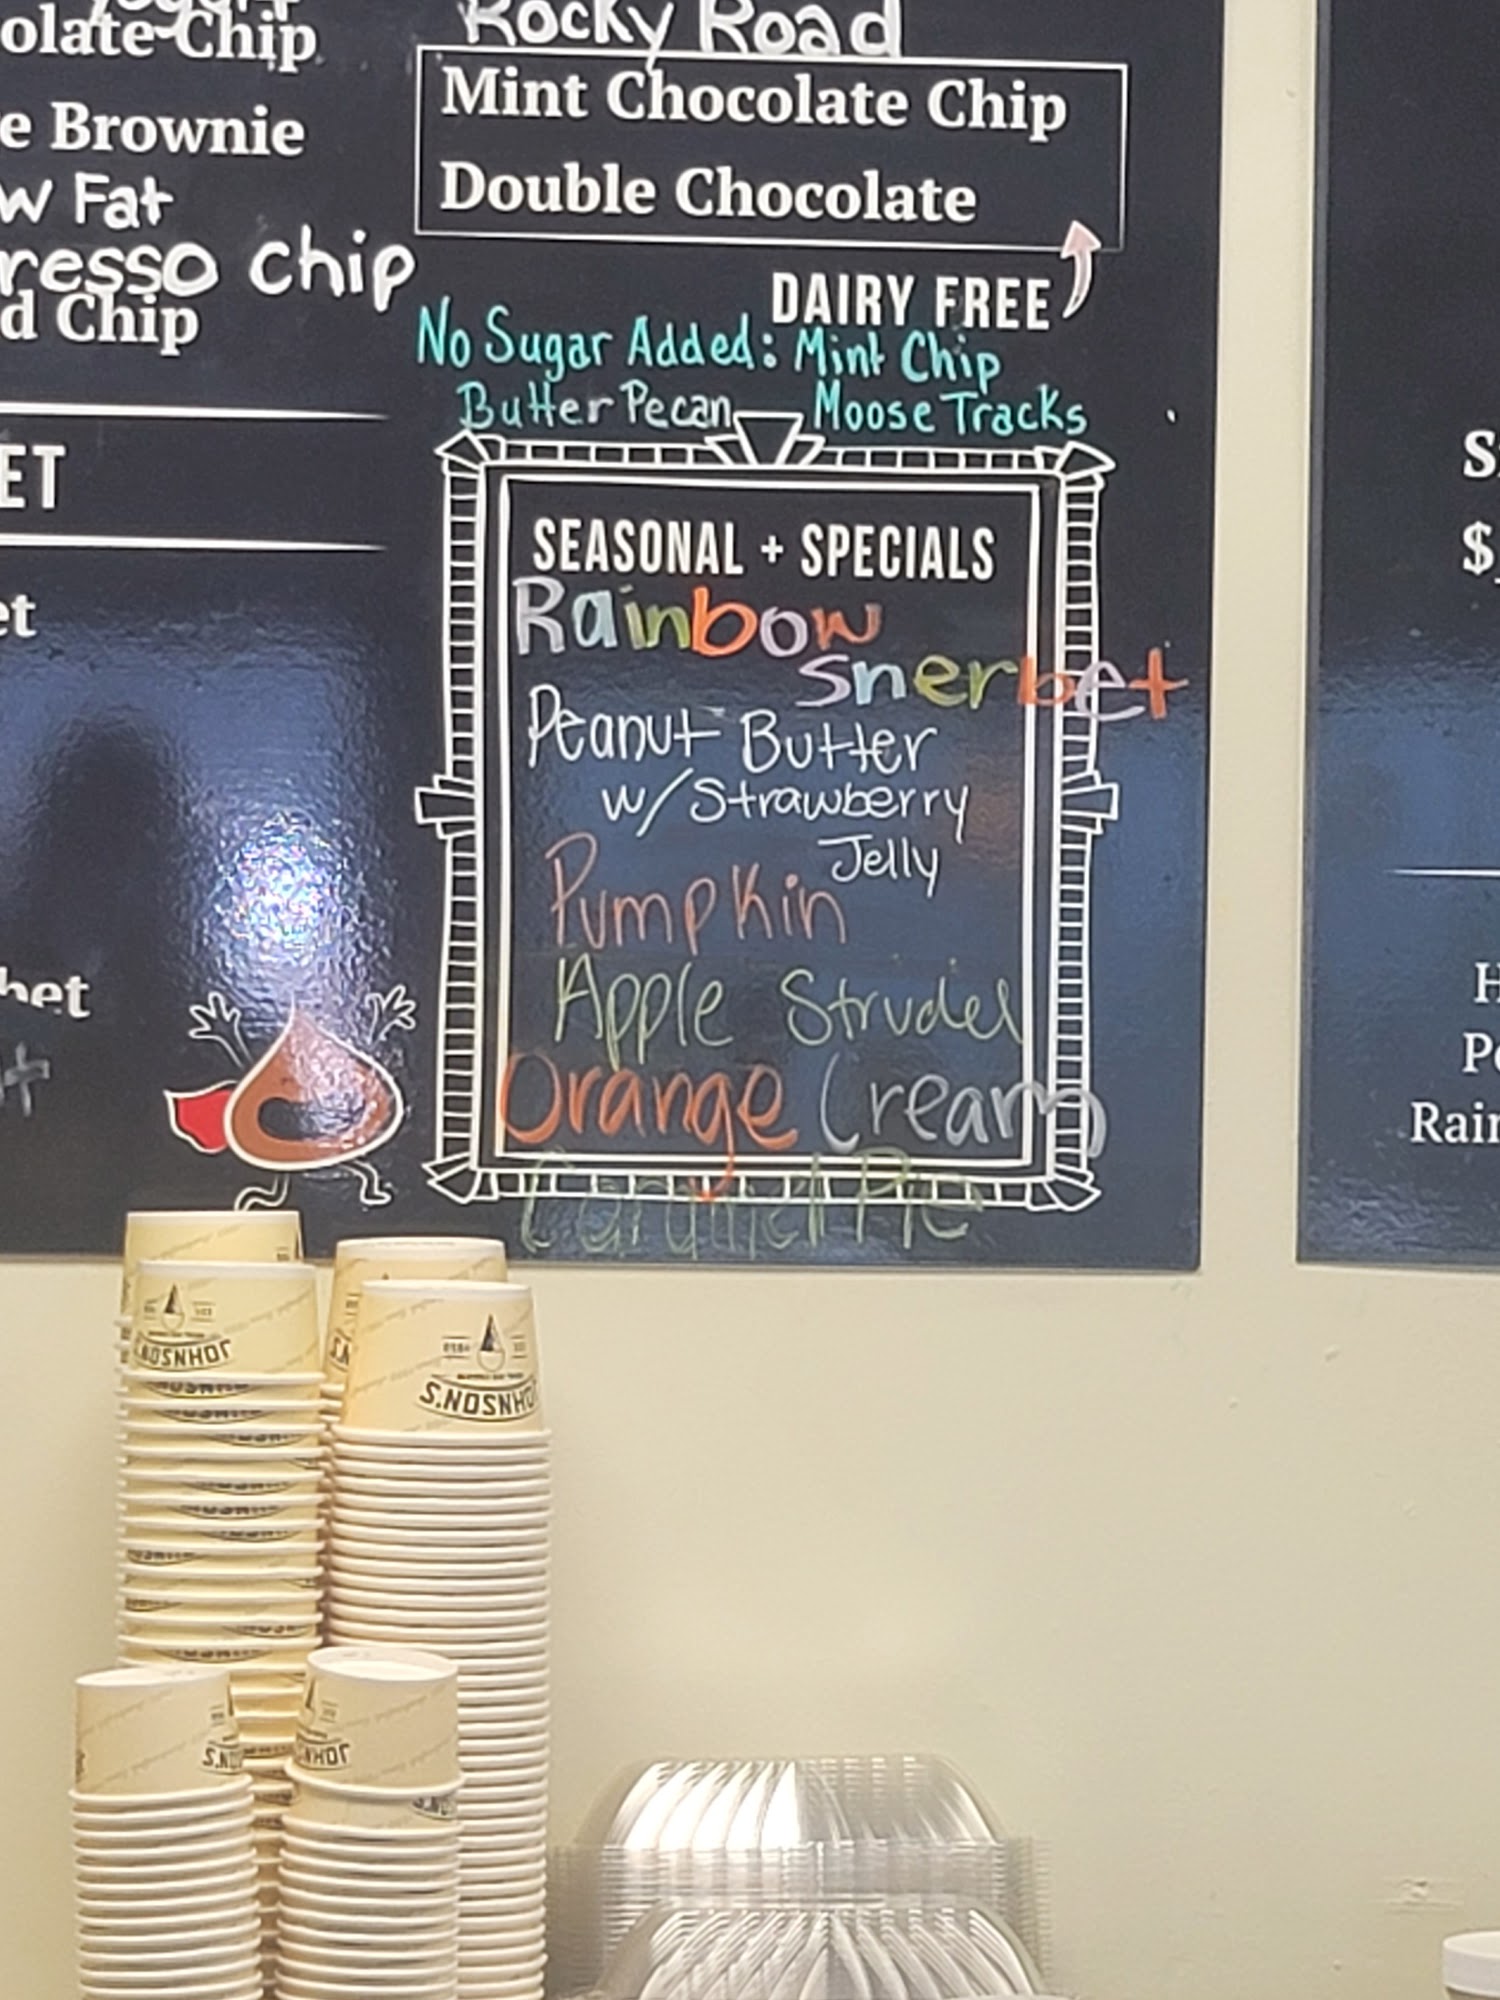 olate Chip
e Brownie
w Fat
resso chip
d Chip
ET
et
bet
Rocky Road
Mint Chocolate Chip
Double Chocolate
DAIRY FREE
No Sugar Added: Mint Chip
Butter Pecan Moose Tracks
SEASONAL + SPECIALS
Rainbow
Snerbet
Peanut Butter
w/ Strawberry
Jelly
Pumpkin
Apple Strudel
Orange Cream
Caramel Pie
$
Rain
JOHNSON'S
JOHNSON'S